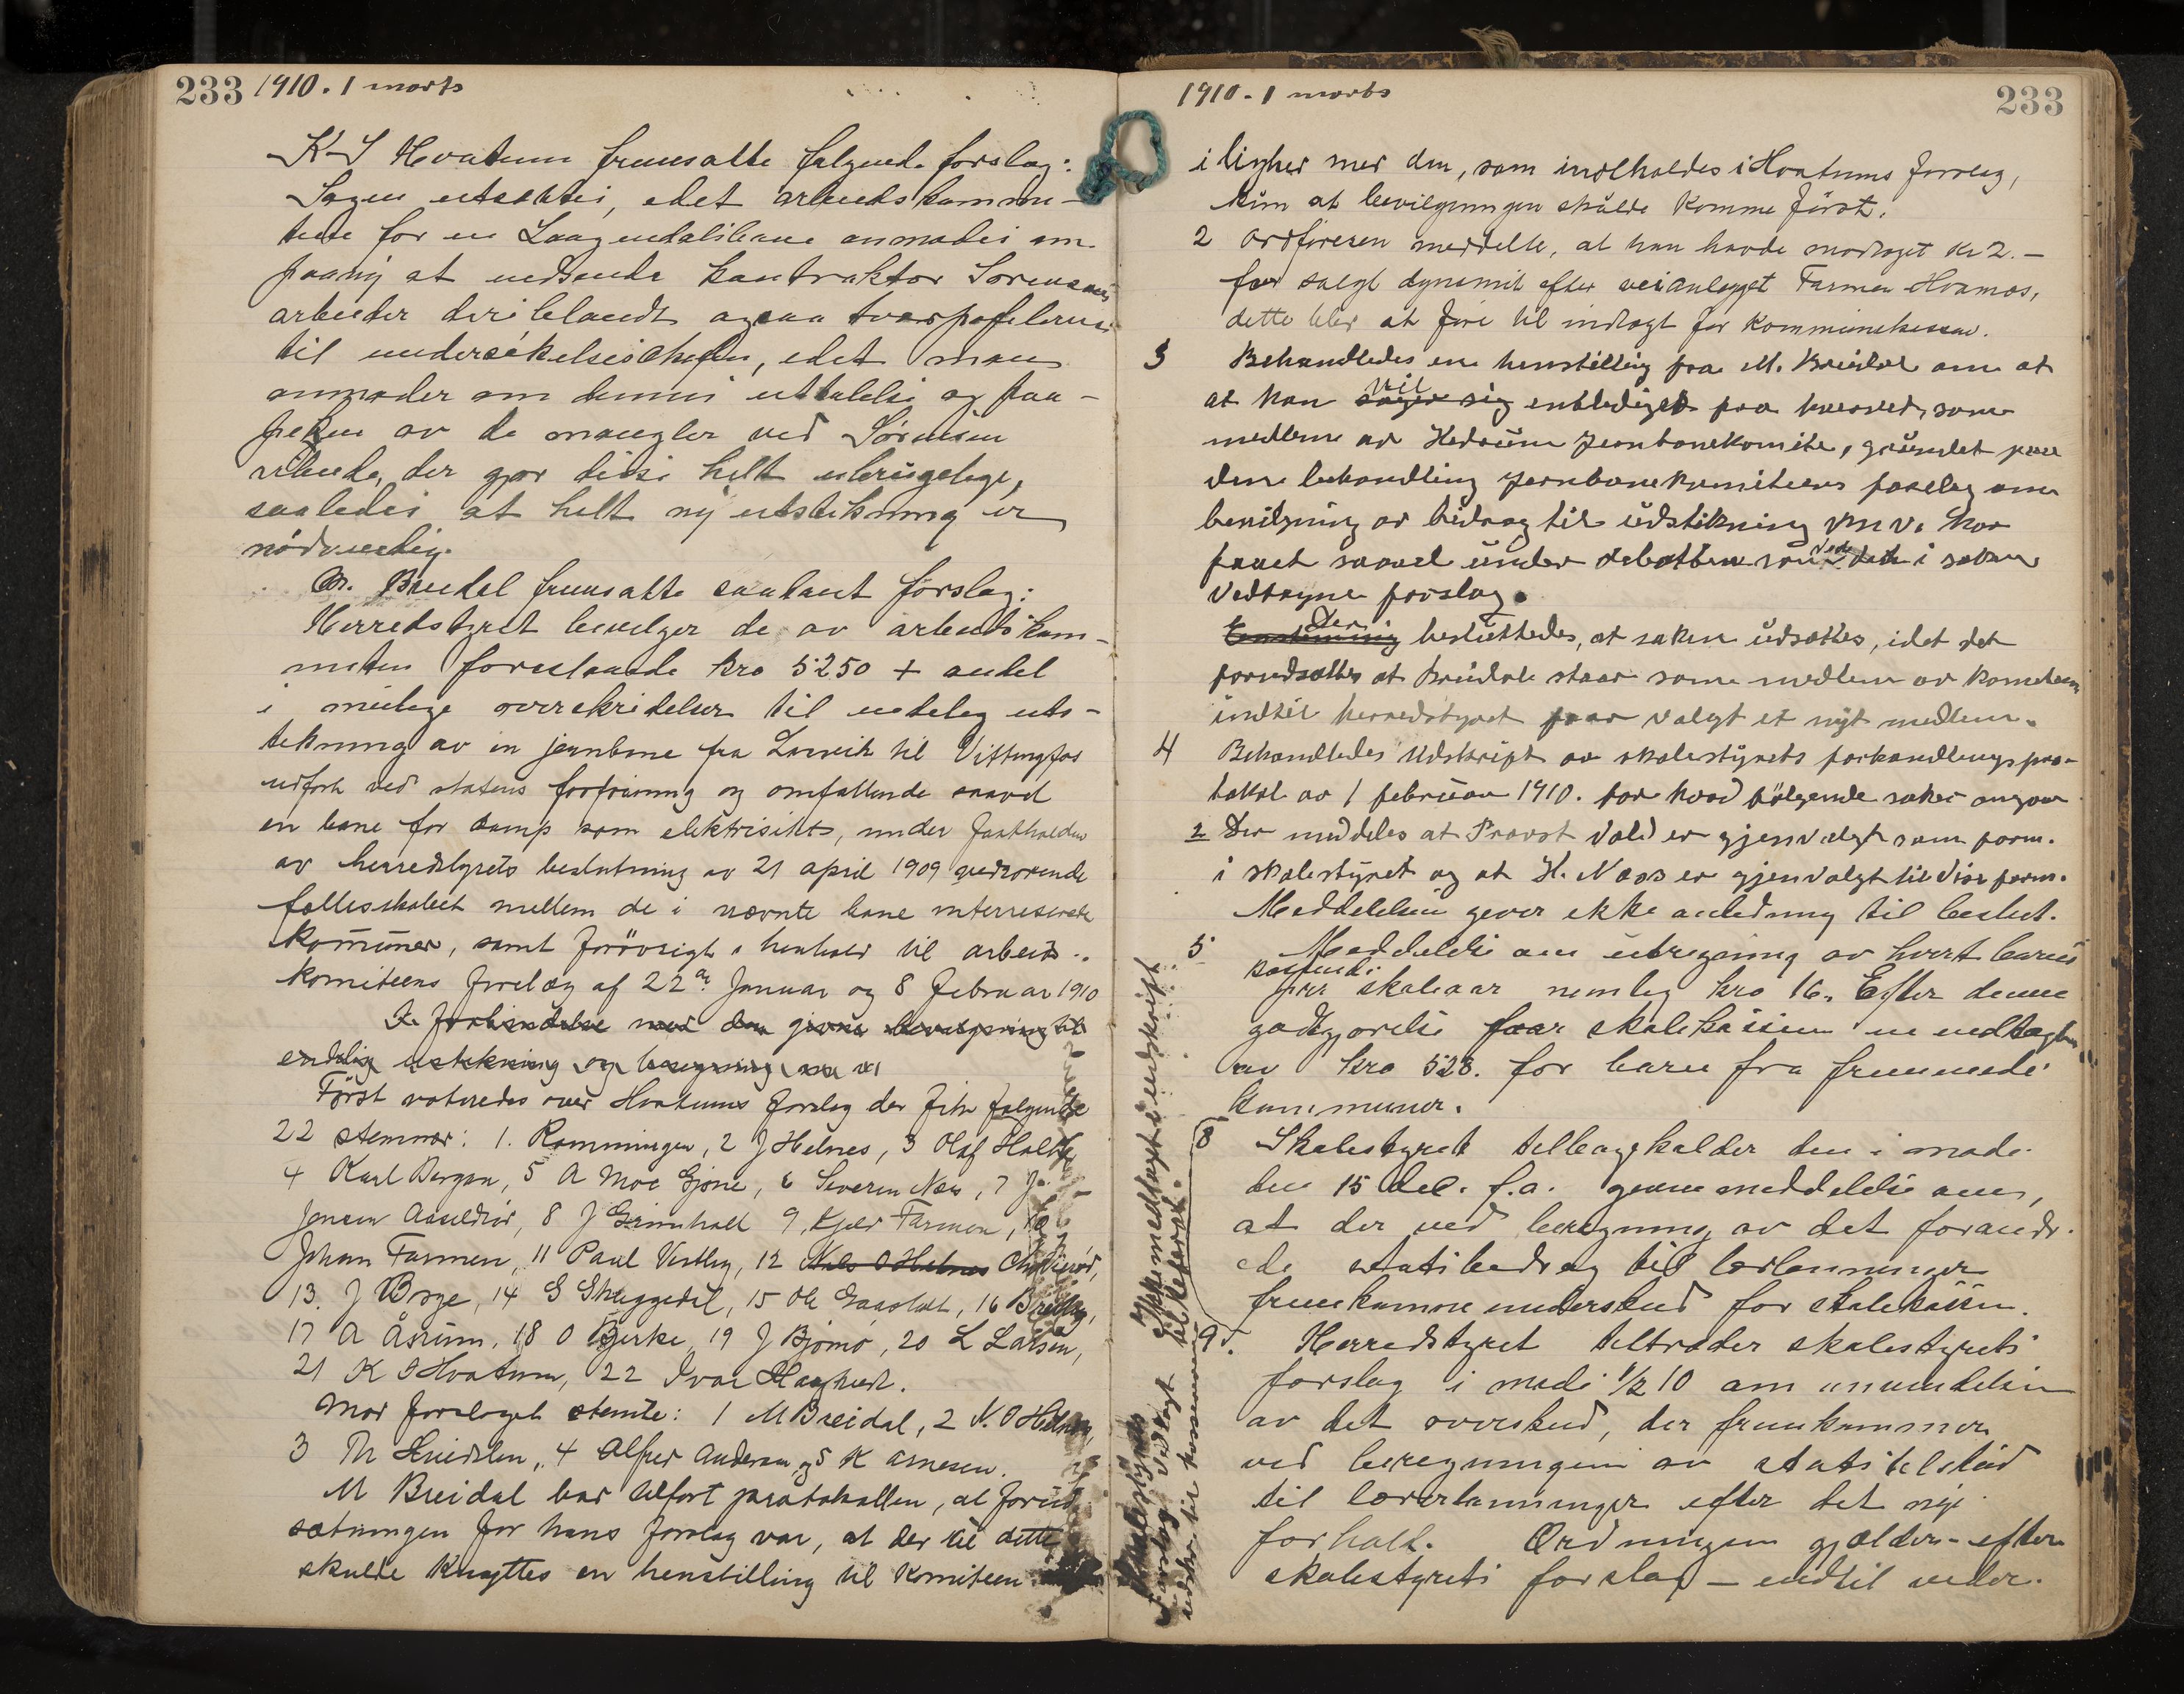 233 1910. 1 marts
K S Hvatum fremsatte følgende forslag:
Sagen utsættes, idet arbeidskommi-
teen for en Laagendalsbane anmodes om
paany at indsende kontraktør Sørensens
arbeider deriblandt ogsaa tverprofilerne
til undersøkelseschefen, idet man
anmoder om dennes uttalelse og paa-
peken av de mangler ved Sørensens
arbeide, der gjør disse helt ubrugelige,
saaledes at helt ny utstikning er
nødvendig.
M. Breidal fremsatte saalydt forslag:
Herredstyret bevilger de av arbeidskom-
miteen foreslaaede kro 5250 + andel
i mulige overskridelser til endelig uts-
tikning av en jernbane fra Larvik til Vittingfos
utført ved statens forføining og omfattende saavel
en bane for damp som elektrisitet, under fastholden
av herredstyrets beslutning av 21 april 1909 vedrørende
fællesskabet mellem de i nævnte bane interreserede
kommuner, samt forøvrigt i henhold til arbeids-
komiteens forelæg af 22de Januar og 8 februar 1910
I forbindelse med den givne bevilgning til
endelig utstikning og beregning
Først voteredes over Hvatums forslag der fik følgende
22 stemmer: 1. Ramningen, 2 J Helnes, 3 Olaf Holthe
4 Karl Bergan, 5 A Moe Gjone, 6 Severin Næs, 7 J.
Jensen Aasildrød, 8 J Grinholt 9, Kjær Farmen, 10
Johan Farmen, 11 Paul Vestby, 12 Nils O Helnes
13. J Borge, 14 G Skuggedal, 15 Ole Gaasholt, 16
17 A Åsrum, 18 O Bjerke 19 J Bjørnø, 20 L Larsen,
21 K S Hvatum, 22 Ivar Haaghedt.
Mod forslaget stemte: 1 M Breidal, 2 N. O Helnes,
3 Th 4 Alfred Andersen og 5 K Arnesen.
M Breidal bad tilført protokollen, at forud-
sætningen for hans forslag var, at der til dette
skulde knyttes en henstilling til komiteen
1910. 1 marts
233
i lighed med den, som indholdes i Hvatums forslag,
kun at bevilgningen skulde komme først.
2 Ordføreren meddelte, at han havde modtaget Kr 2.—
for solgt dynamit efter veianlægget Farmen Hvamos,
dette blev at føre til indtægt for kommunekassen.
3 Behandledes en henstilling fra M. Breidal om at
at han søger sig vil entlediges fra hvervet, som
medlem av Hedrum Jernbanekomite, grundet paa
den behandling jernbanekomiteens forslag om
bevilgning av bidrag til udstikning m v. har
faaet saavel under debatten som ved det i saken
Vedtagne forslag.
Enstemmig Der besluttedes, at saken udsættes, idet det
forudsættes at Breidal staar som medlem av komiteen
indtil herredstyret faar valgt et nyt medlem.
4 Behandledes Udskript av skolestyrets forhandlingspro-
tokol av 1 februar 1910. for hvad følgende saker angaar
2 Der meddeles at Provst Vold er gjenvalgt som form.
i skolestyret og at H. Næss er gjenvalgt til vise form.
Meddelelsen giver ikke anledning til beslut.
5 Meddelelse om utregning av hvert barns
kostende
per skoleaar nemlig kro 16. Efter denne
godtgjørelse faar skolekassen en indtægt
av kro 528. for barn fra fremmede
kommuner.
8 Skolestyret tilbagekalder den i møde
den 15 dec. f.a. givne meddelelse om,
at der ved beregning av det forandr-
ede statsbidrag til lærlønninger
fremkommer underskud for skolekassen.
9. Herredstyret tiltræder skolestyrets
forslag i møde 1/2 10 om anvendelsen
av det overskud, der fremkommer
ved beregningen av statstilskud
til lærerlønninger efter det nye
forhold. Ordningen gjælder - efter
skolestyrets forslag — indtil videre.
Skolestyrets
Forslag vedtaget Ikke medtaget i utskrift